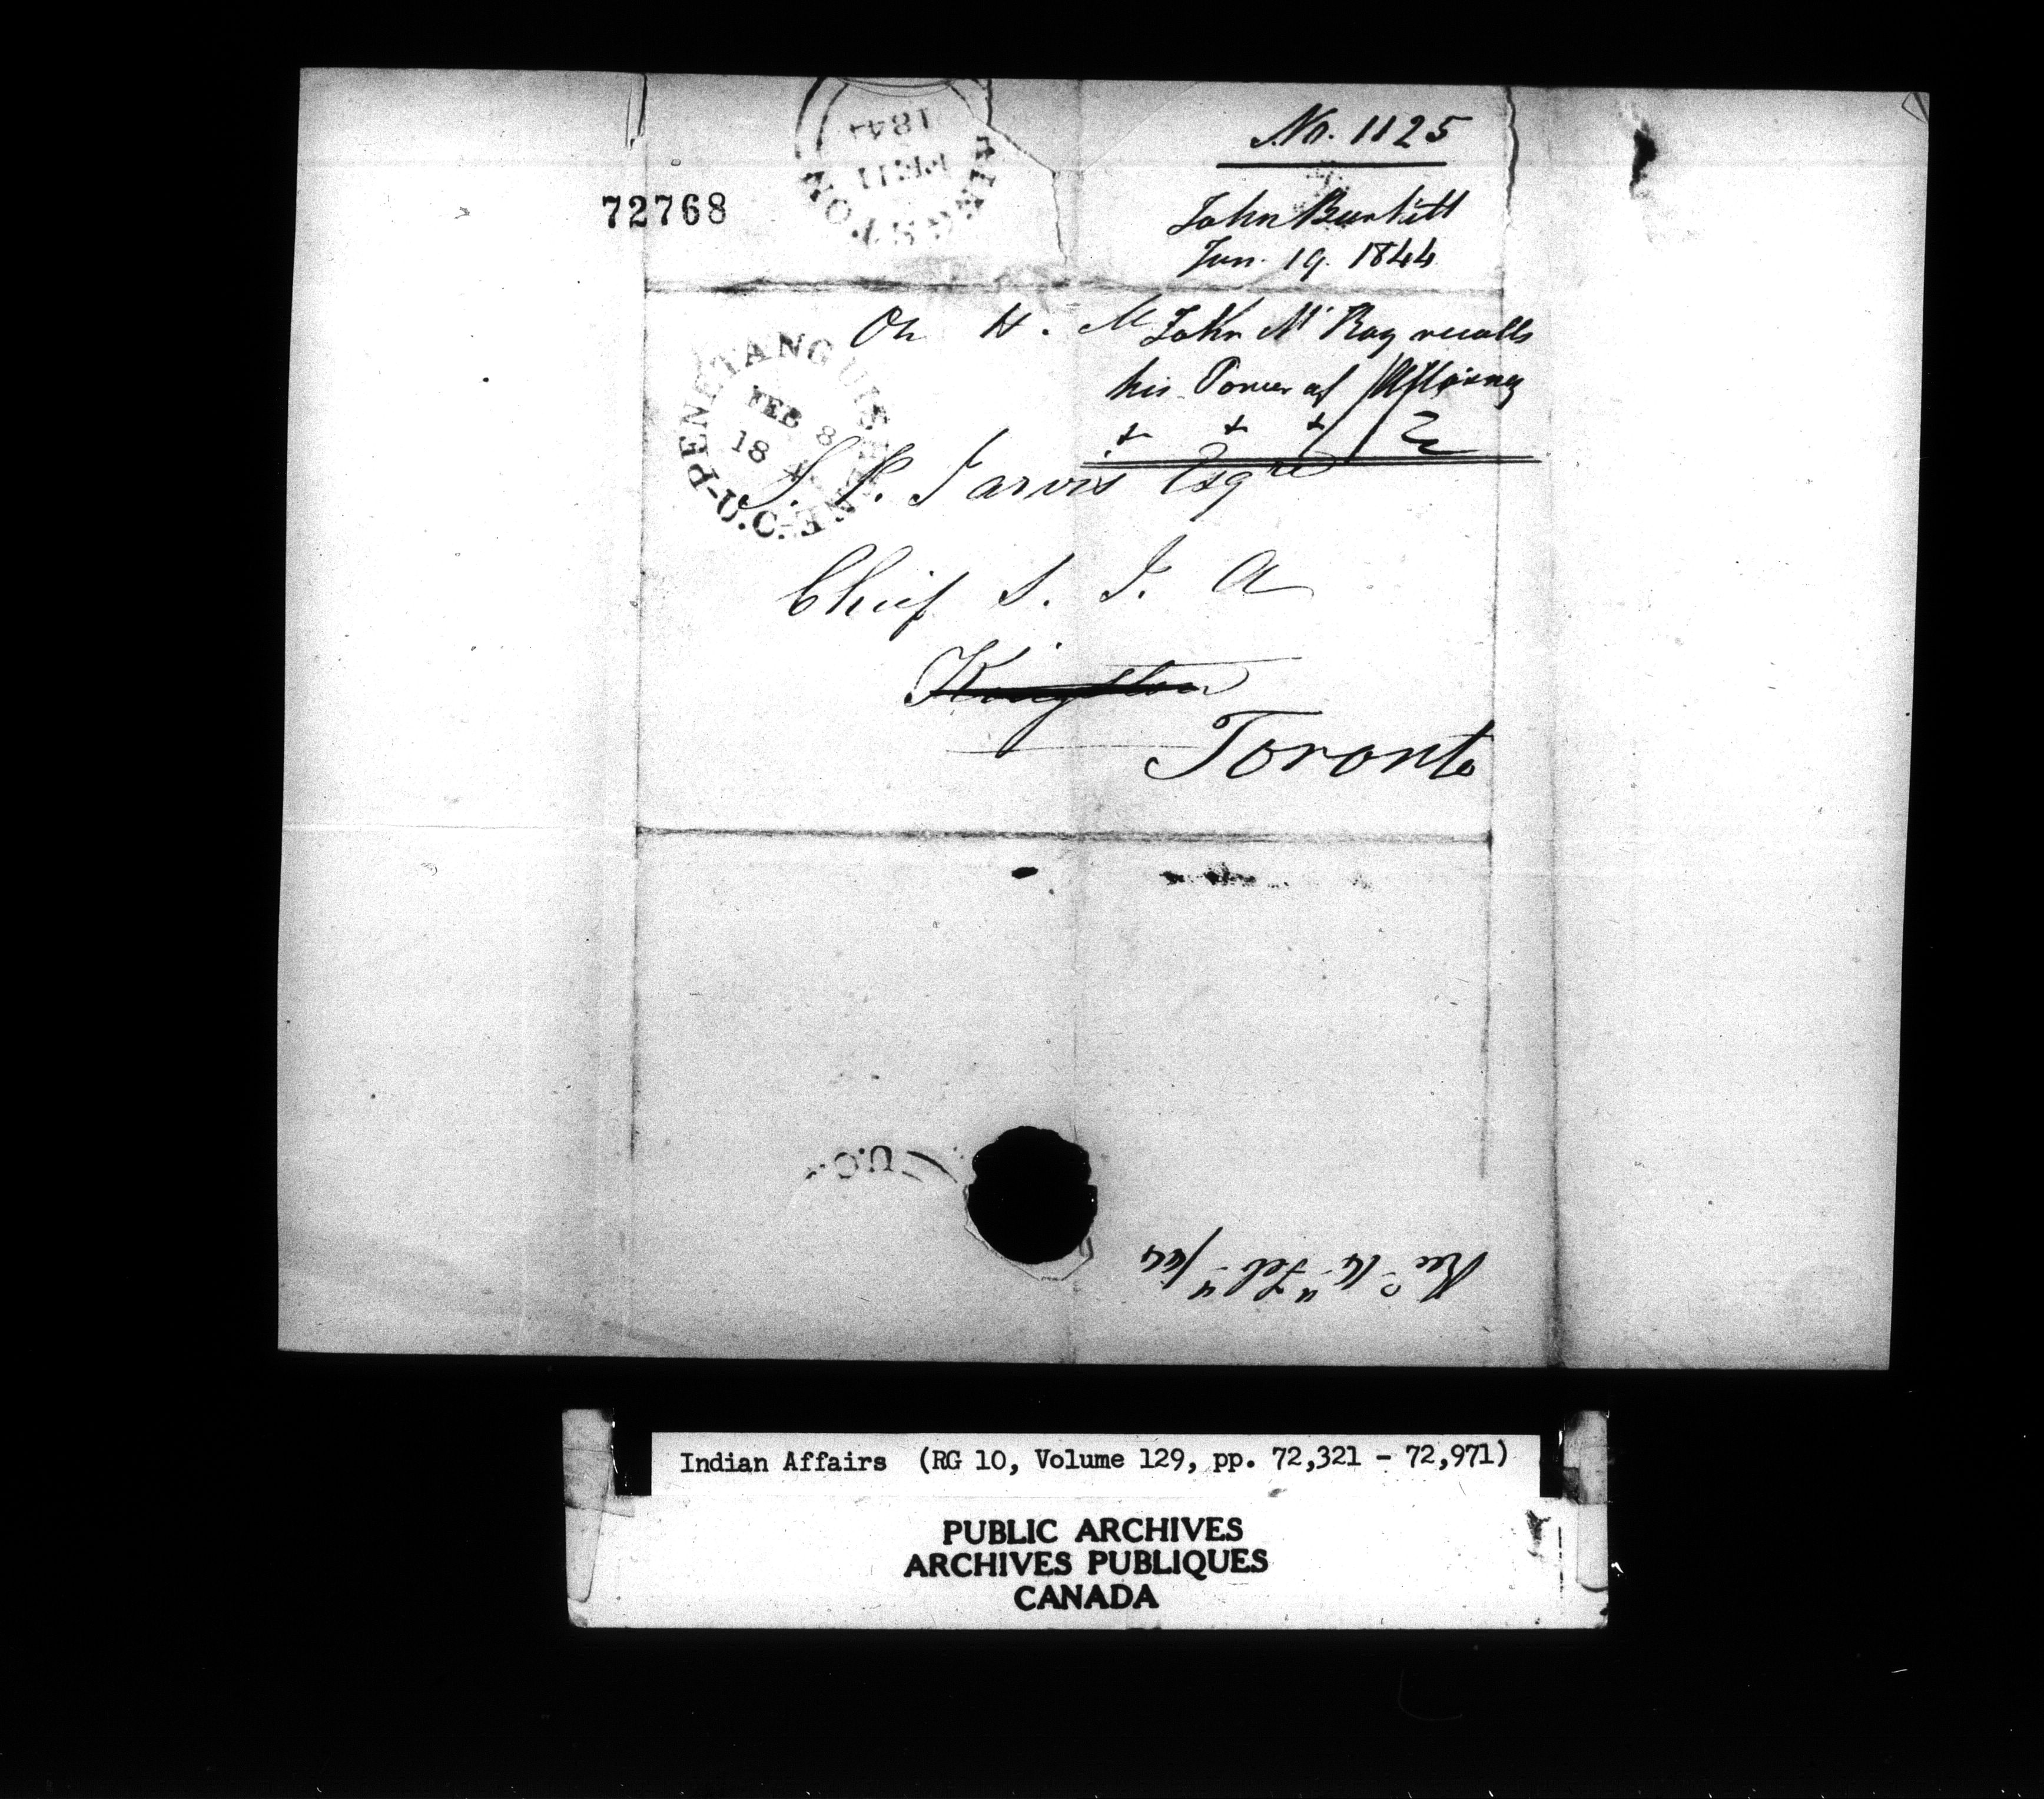 No. 1125
72768
John Burkitt
Jan. 19. 1844
KINGSTON
FE 11
1844
On H. M
John McKay recalls
his Power of Attorney
PENETANGUISHENE-U.C-
FEB 8
184
S. P. Jarvis Esqre
Chief S. I. A
Kingston
Toronto
U.C.
Recd 14th Feby /44
Indian Affairs (RG 10, Volume 129, pp. 72,321 - 72,971)
PUBLIC ARCHIVES
ARCHIVES PUBLIQUES
CANADA